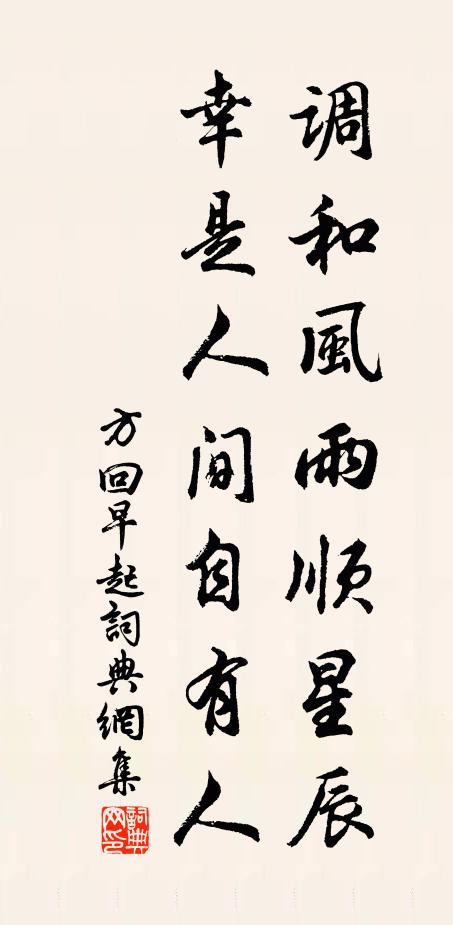 調和風雨順星辰
幸是人間自有人
方回早起詞典網集
詞典网印